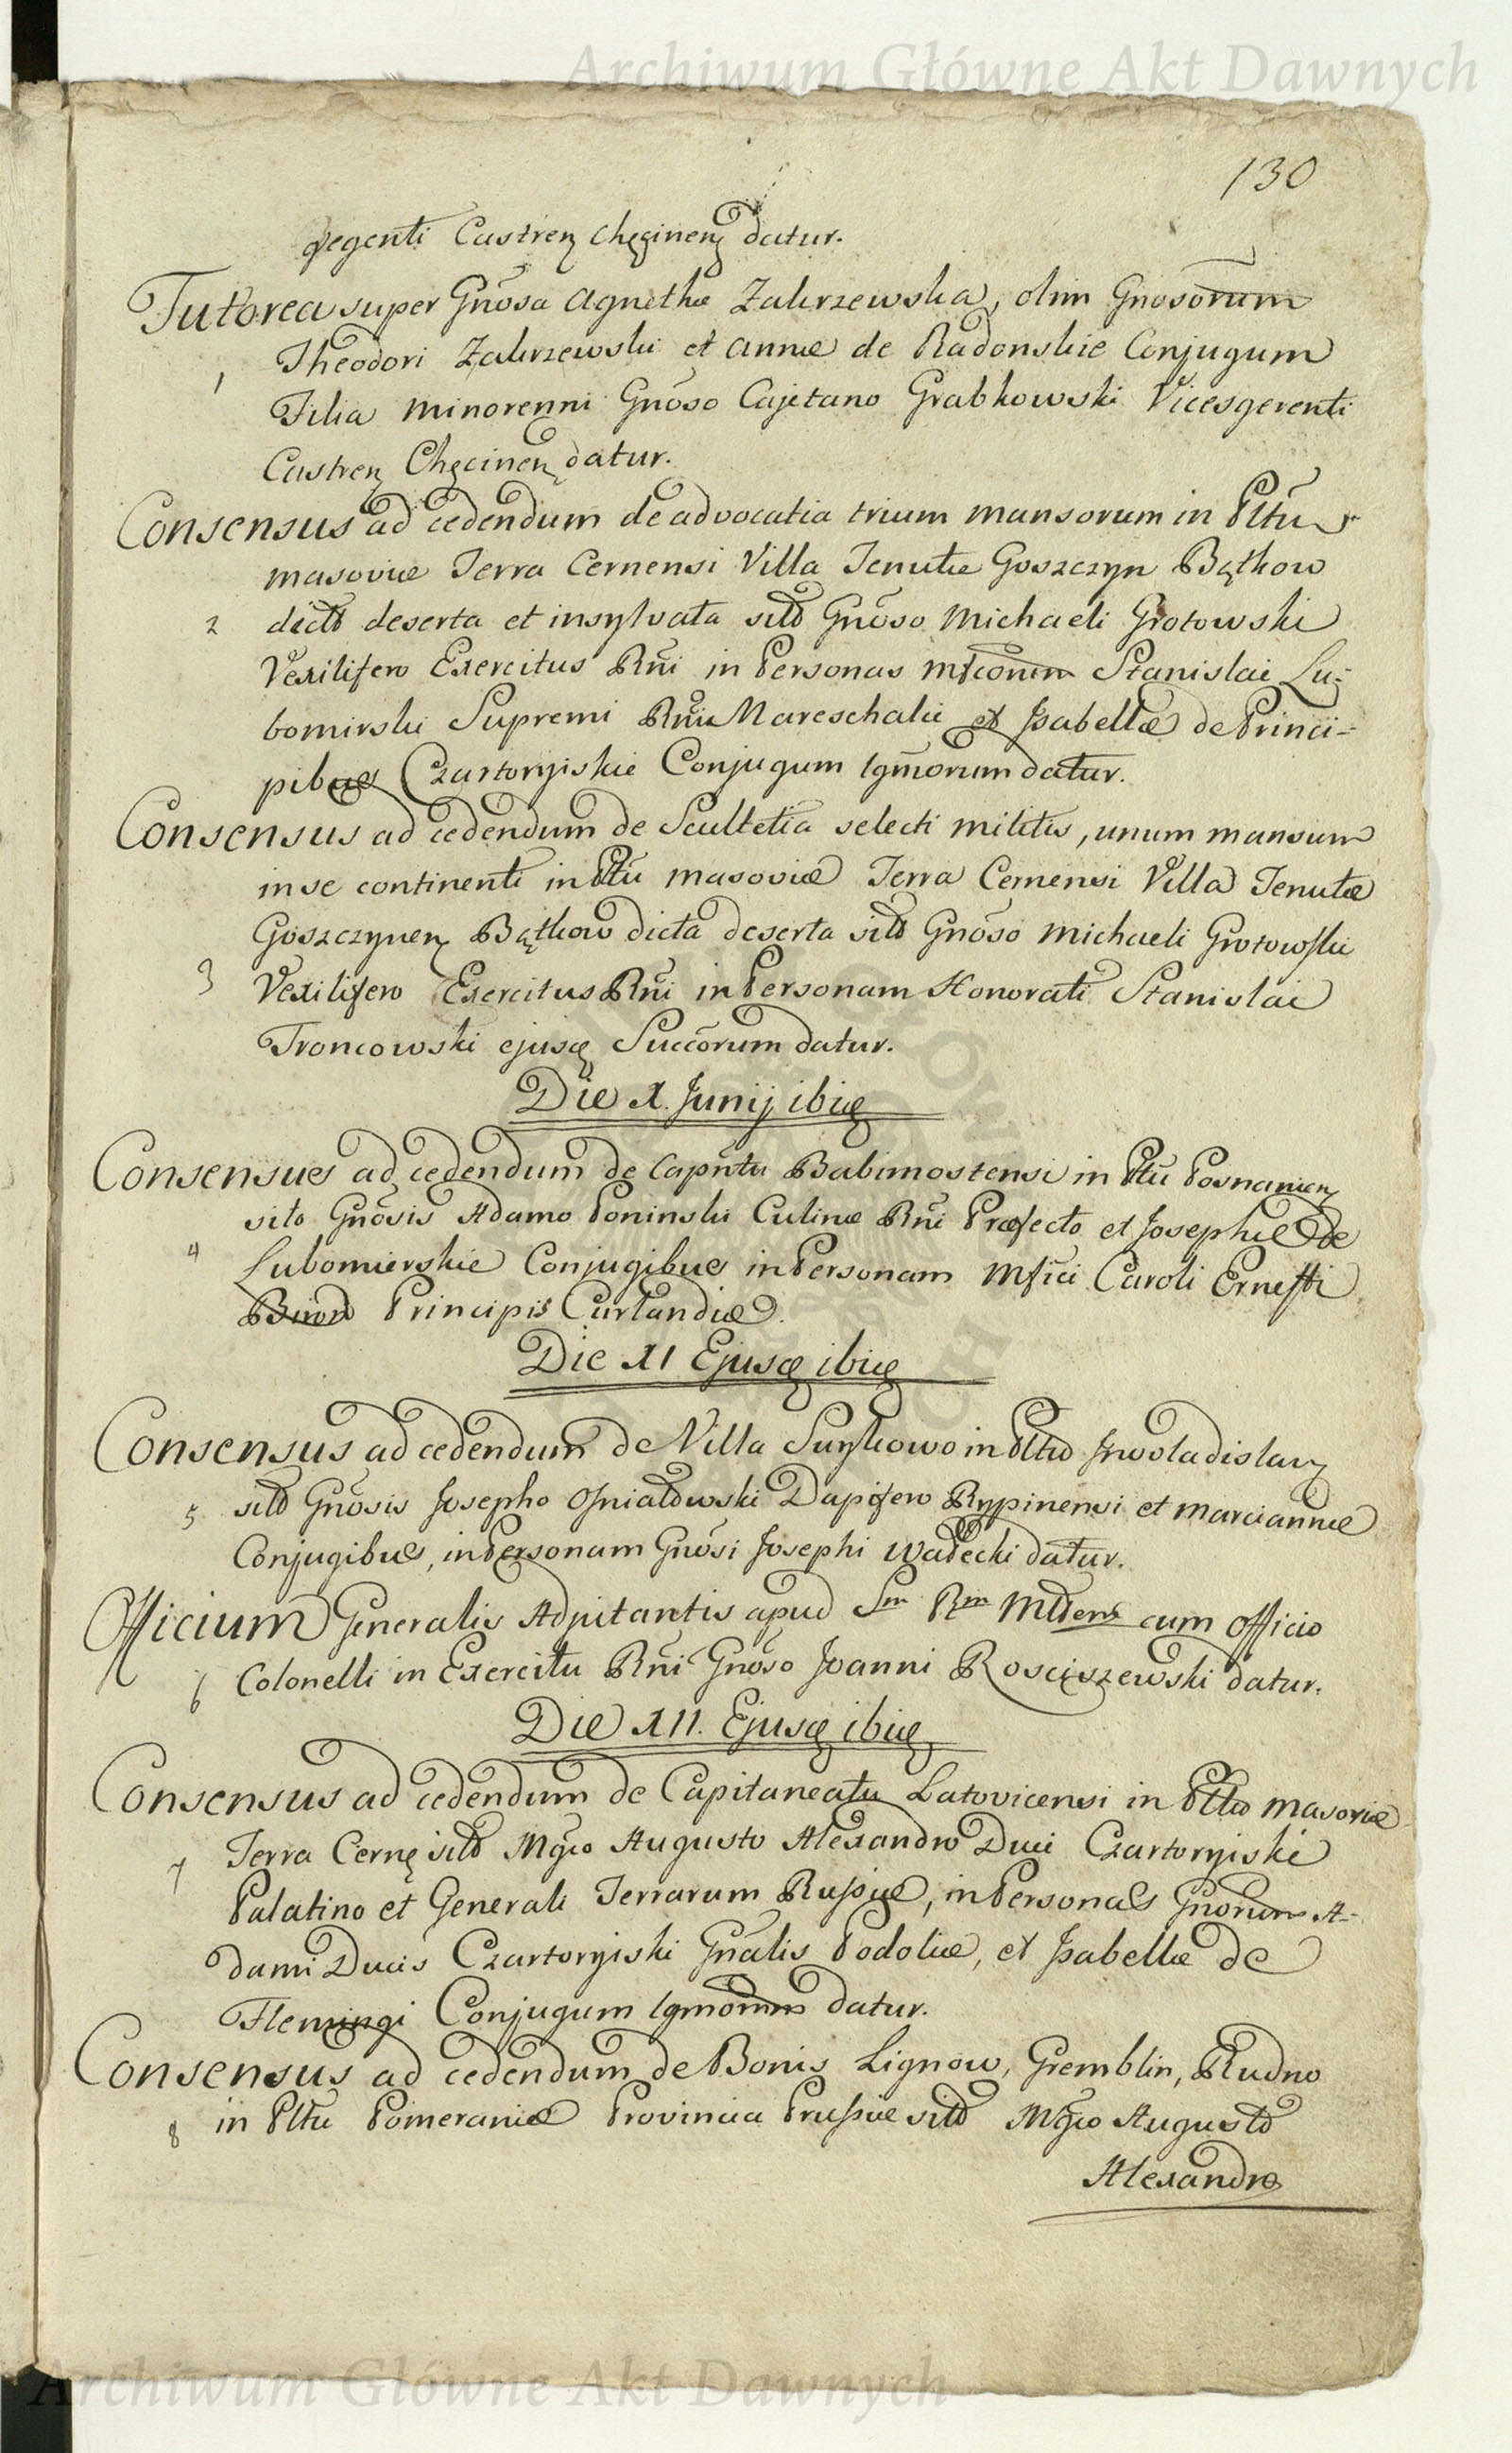 Archiwum Główne Akt Dawnych
130
gegenti Castren Chęcinen datur.
Tutorea super Gnosa Agnethæ Zakrzewska, olim Gnosorum
Theodori Zakrzewski et Annæ de Radonskie Conjugum
1 Filia minorenni Gnoso Cajetano Grabkowski Vicesgerenti
Castren Chęcinen datur.
Consensus ad cedendum de advocatia trium mansorum in Pltu
Masoviæ Terra Cernensi Villa Tenutæ Goszczyn Bątkow
2 dicto deserta et insylvata sito Gnoso Michaeli Grotowski
Vexilifero Exercitus Rni in Personas Mficorum Stanislai Lu-
bomirski Supremi Rni Mareschalii et Isabellæ de Princi-
pibus Czartoryiskie Conjugum Igmorum datur.
Consensus ad cedendum de Scultetia selecti militis, unum mansum
in se continenti in Pltu Masoviæ Terra Cernensi Villa Tenutæ
Goszczynen Bątkow dicta deserta sito Gnoso Michaeli Grotowski
3 Vexilifero Exercitus Rni in Personam Honorati Stanislai
Troncowski ejusq Succorum datur.
Die X. Junij ibiq
Consensus ad cedendum de Capnttu Babimostensi in Pltu Posnanien
sito Gnosis Adamo Poninski Culinæ Rni Præfecto et Josephæ de
4 Lubomierskie Conjugibus in Personam Mfici Caroli Ernesti
Biron Principis Curlandiæ.
Die XI Ejusq ibiq
Consensus ad cedendum de Villa Surkowo in Pltto Inwoladislav
5 sito Gnosis Josepho Ośniałowski Dapifero Rypinensi et Mariannæ
Conjugibus, in Personam Gnosi Josephi Wadecki datur.
Officium Generalis Adjutantis apud Sm Rm Mttem cum officio
6 Colonelli in Exercitu Rni Gnoso Joanni Rosciszewski datur.
Die XII. Ejusq ibiq
Consensus ad cedendum de Capitaneatu Latovicensi in Pltto Masoviæ
7 Terra Cerne sito Mgco Augusto Alexandro Duci Czartoryiski
Palatino et Generali Terrarum Russiæ, in Personas Gnorum A-
dami Ducis Czartoryiski Gnalis Podoliæ, et Isabellæ de
Flemingi Conjugum Igmorum datur.
Consensus ad cedendum de Bonis Lignow, Gremblin, Rudno
8 in Pltu Pomeraniæ Provincia Prussiæ sito Mgco Augusto
Alexandro
Archiwum Główne Akt Dawnych